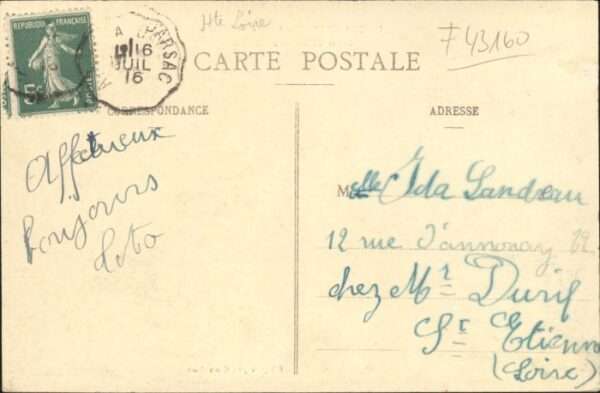 REPUBLIQUE FRANÇAISE
5c
16
JUIL
16
Hte Loire
F 43160
CARTE POSTALE
CORRESPONDANCE
ADRESSE
Affectueux
bonjours
Mlle Ida Landreau
12 rue d'annonay 12
chez Mr Duril
St Etienne
(Loire)